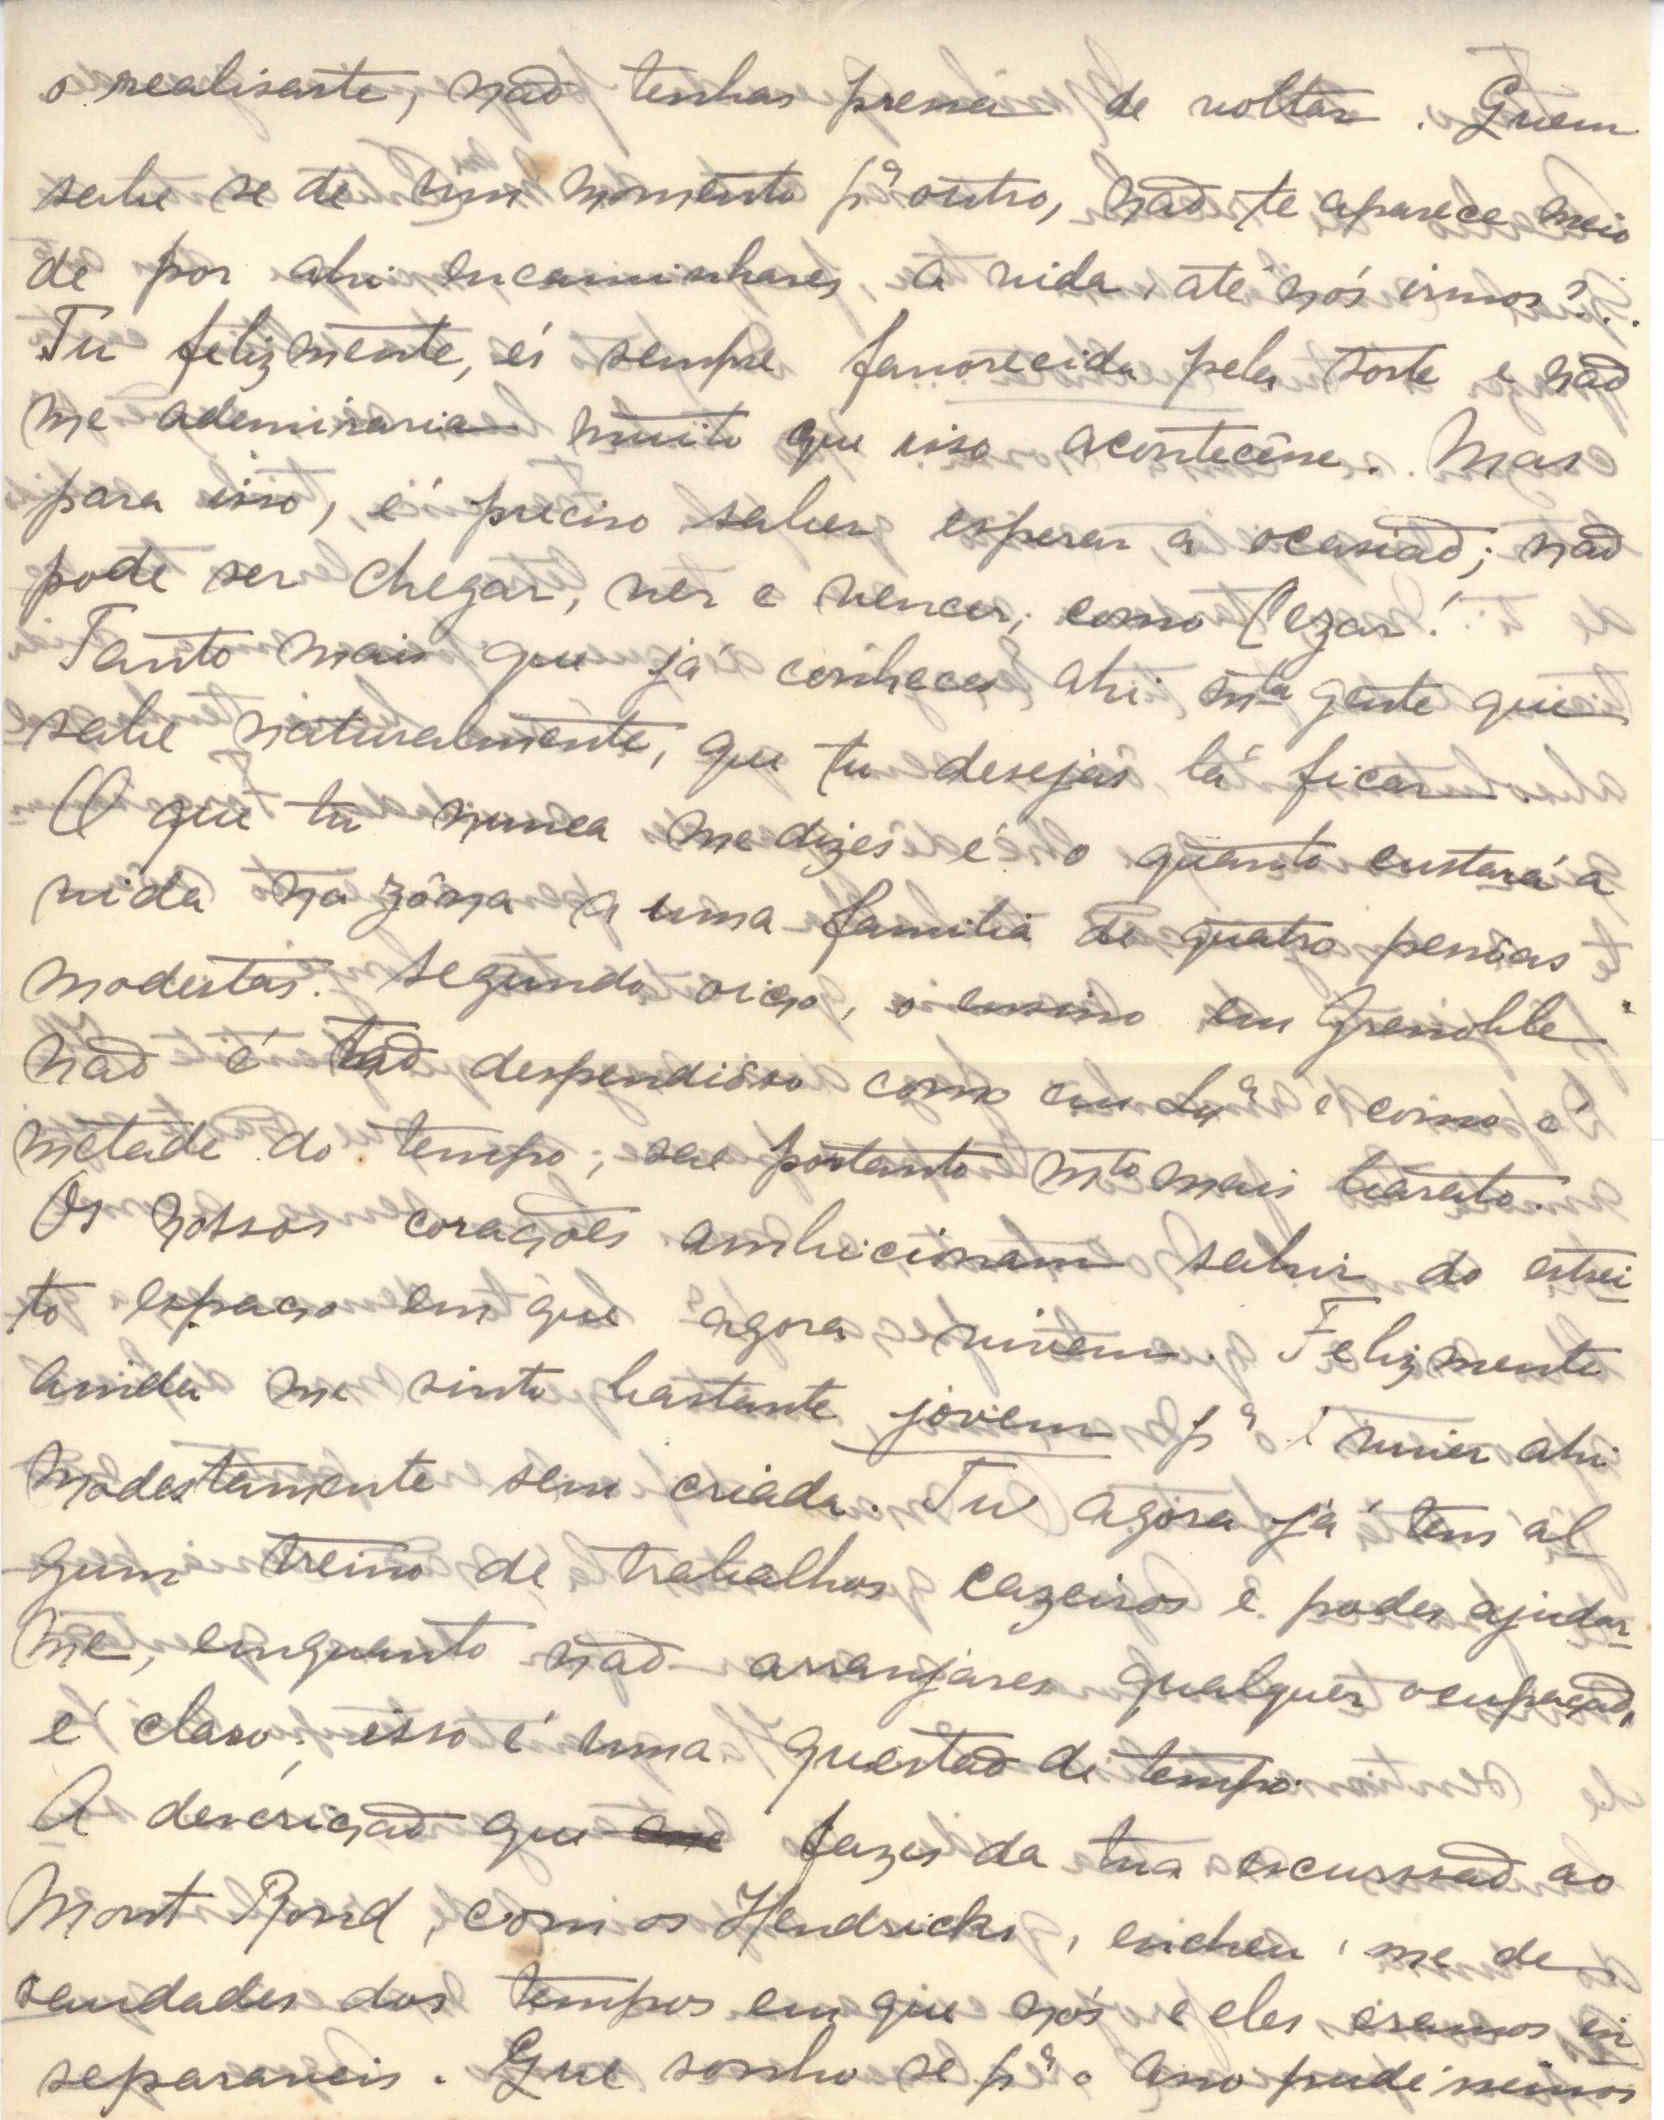 o realisaste, não tenhas pressa de voltar. Quem
sabe se de um momento pª outro, não te aparece meio
de por ahi encaminhares a vida, até nós irmos?..
Tu felizmente, és sempre favorecida pela sorte e não
me ademiraria muito que isso acontecêsse. Mas
para isso, é preciso saber esperar a ocasião; não
pode ser chegar, ver e vencer, como Cezar!
Tanto mais que já conheces ahi mta gente que
sabe naturalmente, que tu desejas lá ficar.
O que tu nunca me dizes é o quanto custará a
vida na zôna a uma familia de quatro pessôas
modestas. Segundo oiço, o ensino em Grenoble
não é tão despendiôso como em Lxª e como é
metade do tempo, sae portanto mto mais barato.
Os nossos corações ambicionam sahir do estrei-
to espaço em que agora vivem. Felizmente
ainda me sinto bastante jovem pª ir viver ahi
modestamente sem criada. Tu agora já tens al-
gum treino de trabalhos cazeiros e podes ajudar-
me, enquanto não arranjares qualquer ocupação,
é claro; isso é uma questão de tempo.
A descrição que fazes da tua escursão ao
Mont Rond, com os Hendricks, encheu-me de
saudades dos tempos em que nós e eles eramos in-
separaveis. Que sonho se pª o Ano pudéssemos